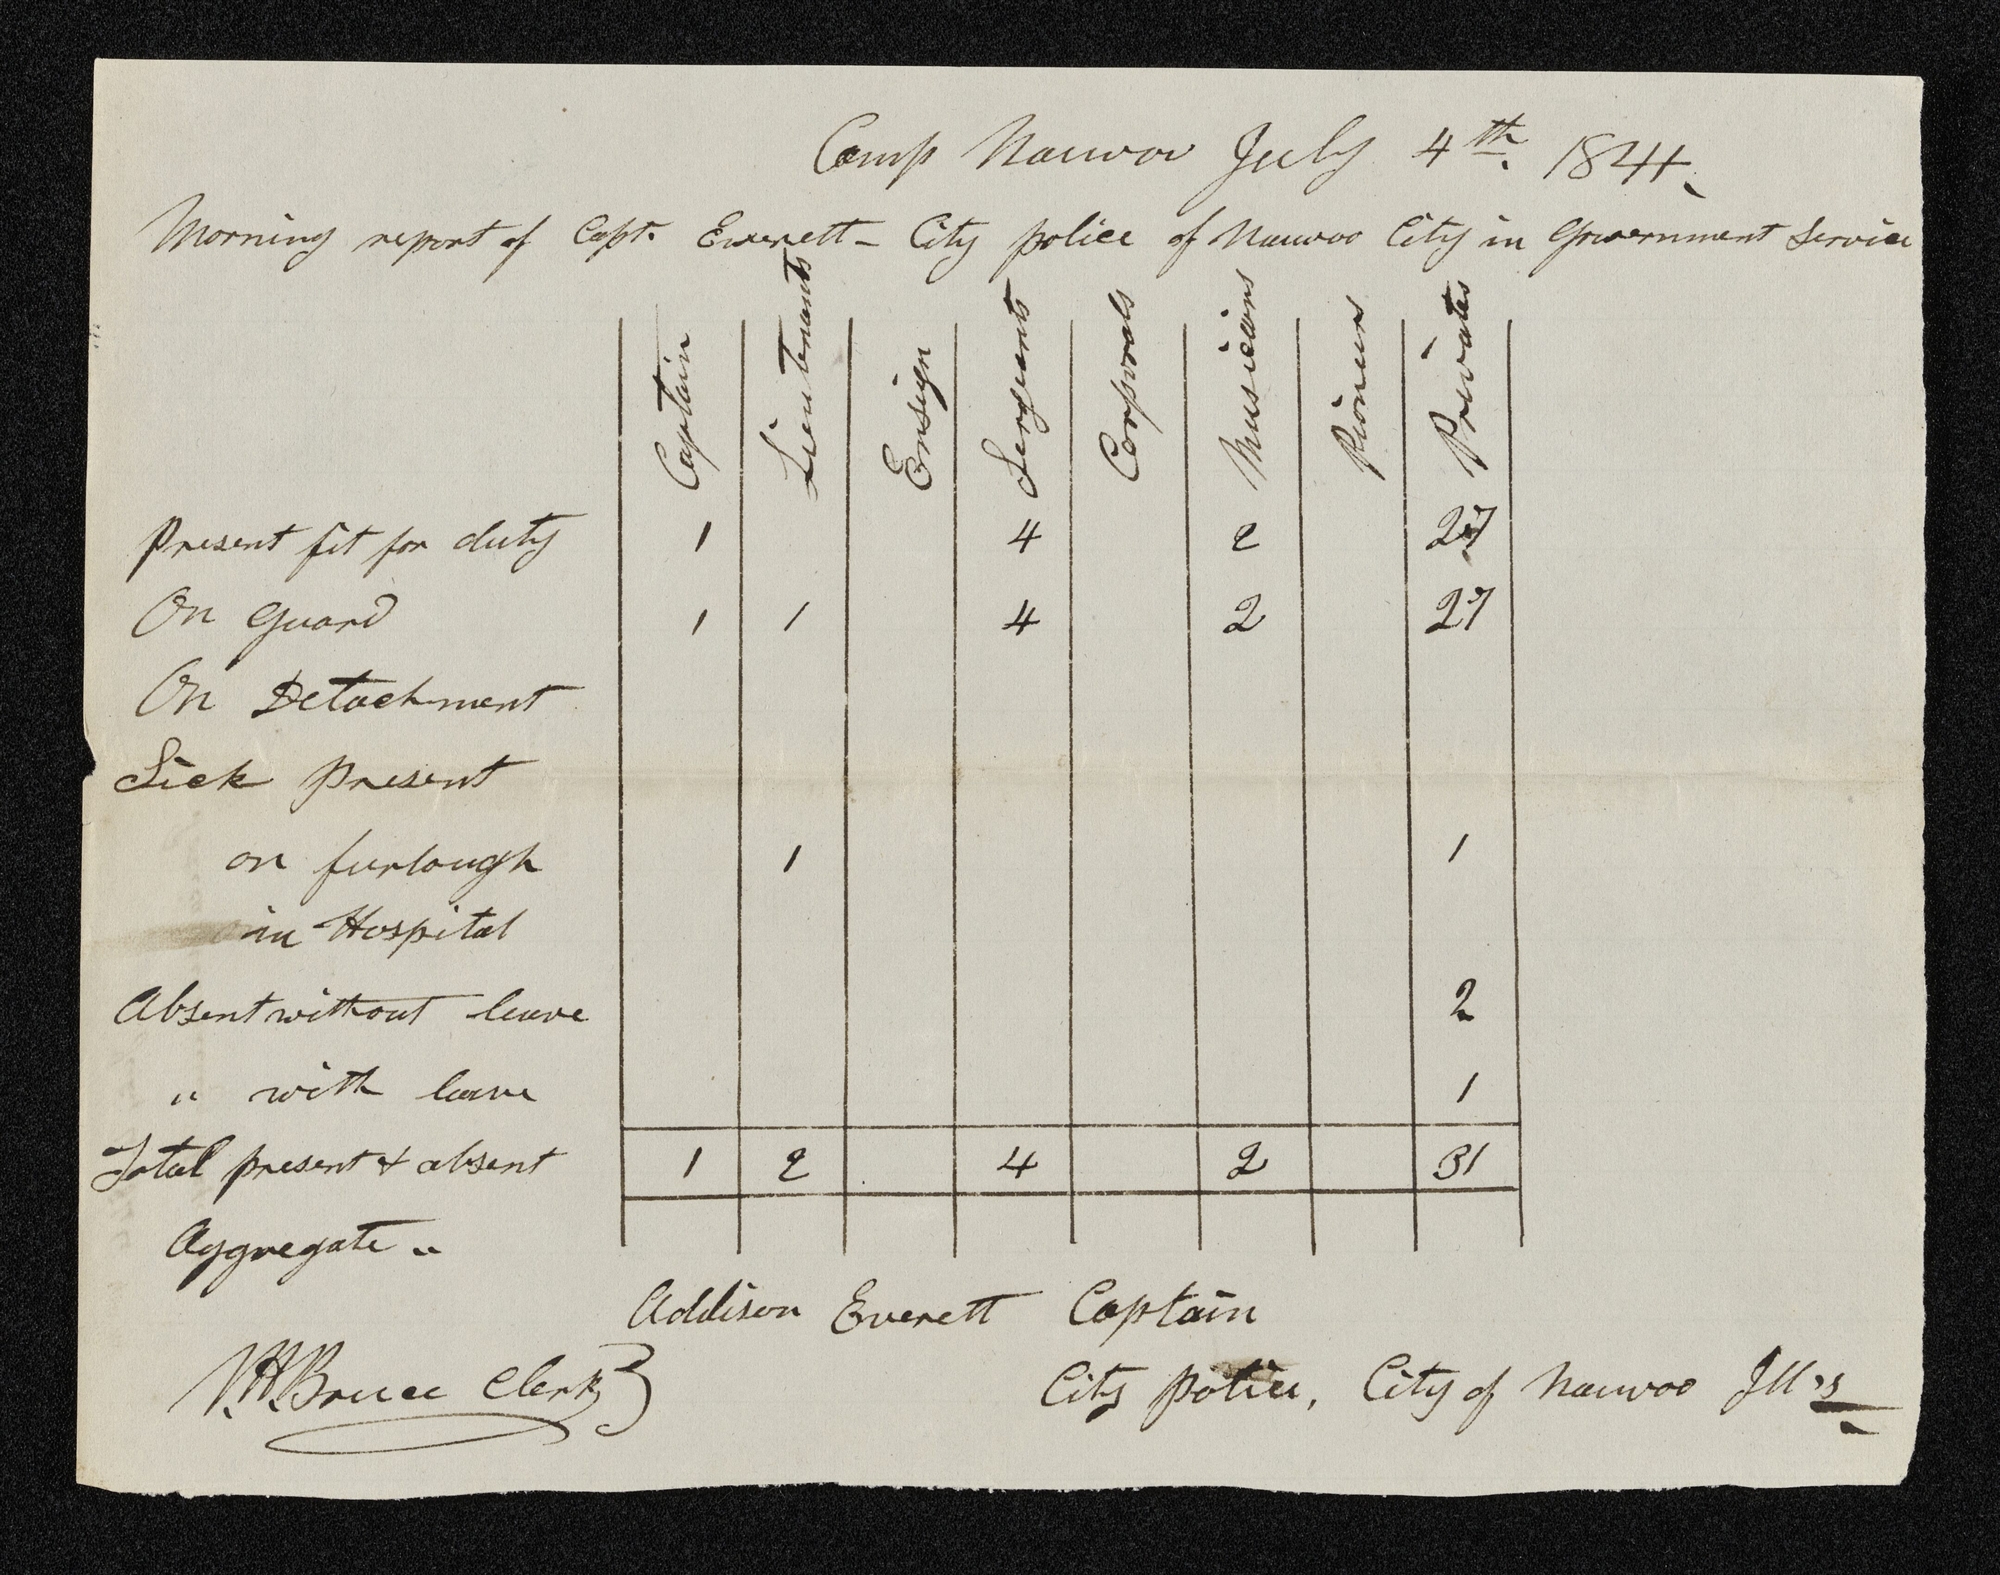 Camp Nauvoo July 4th. 1844.
Morning report of Capt. Everett – City police of Nauvoo City in Government Service
Captain Lieutenants Ensign Sergeants Corporals Musicians Pioneers Privates
Present fit for duty 1 4 2 27
On Guard 1 1 4 2 27
On Detachment
Sick Present
on furlough 1 1
in Hospital
Absent without leave 2
" with leave 1
Total present & absent 1 2 4 2 31
Aggregate "
Addison Everett Captain
Bruce Clerk
City Police, City of Nauvoo Ill's